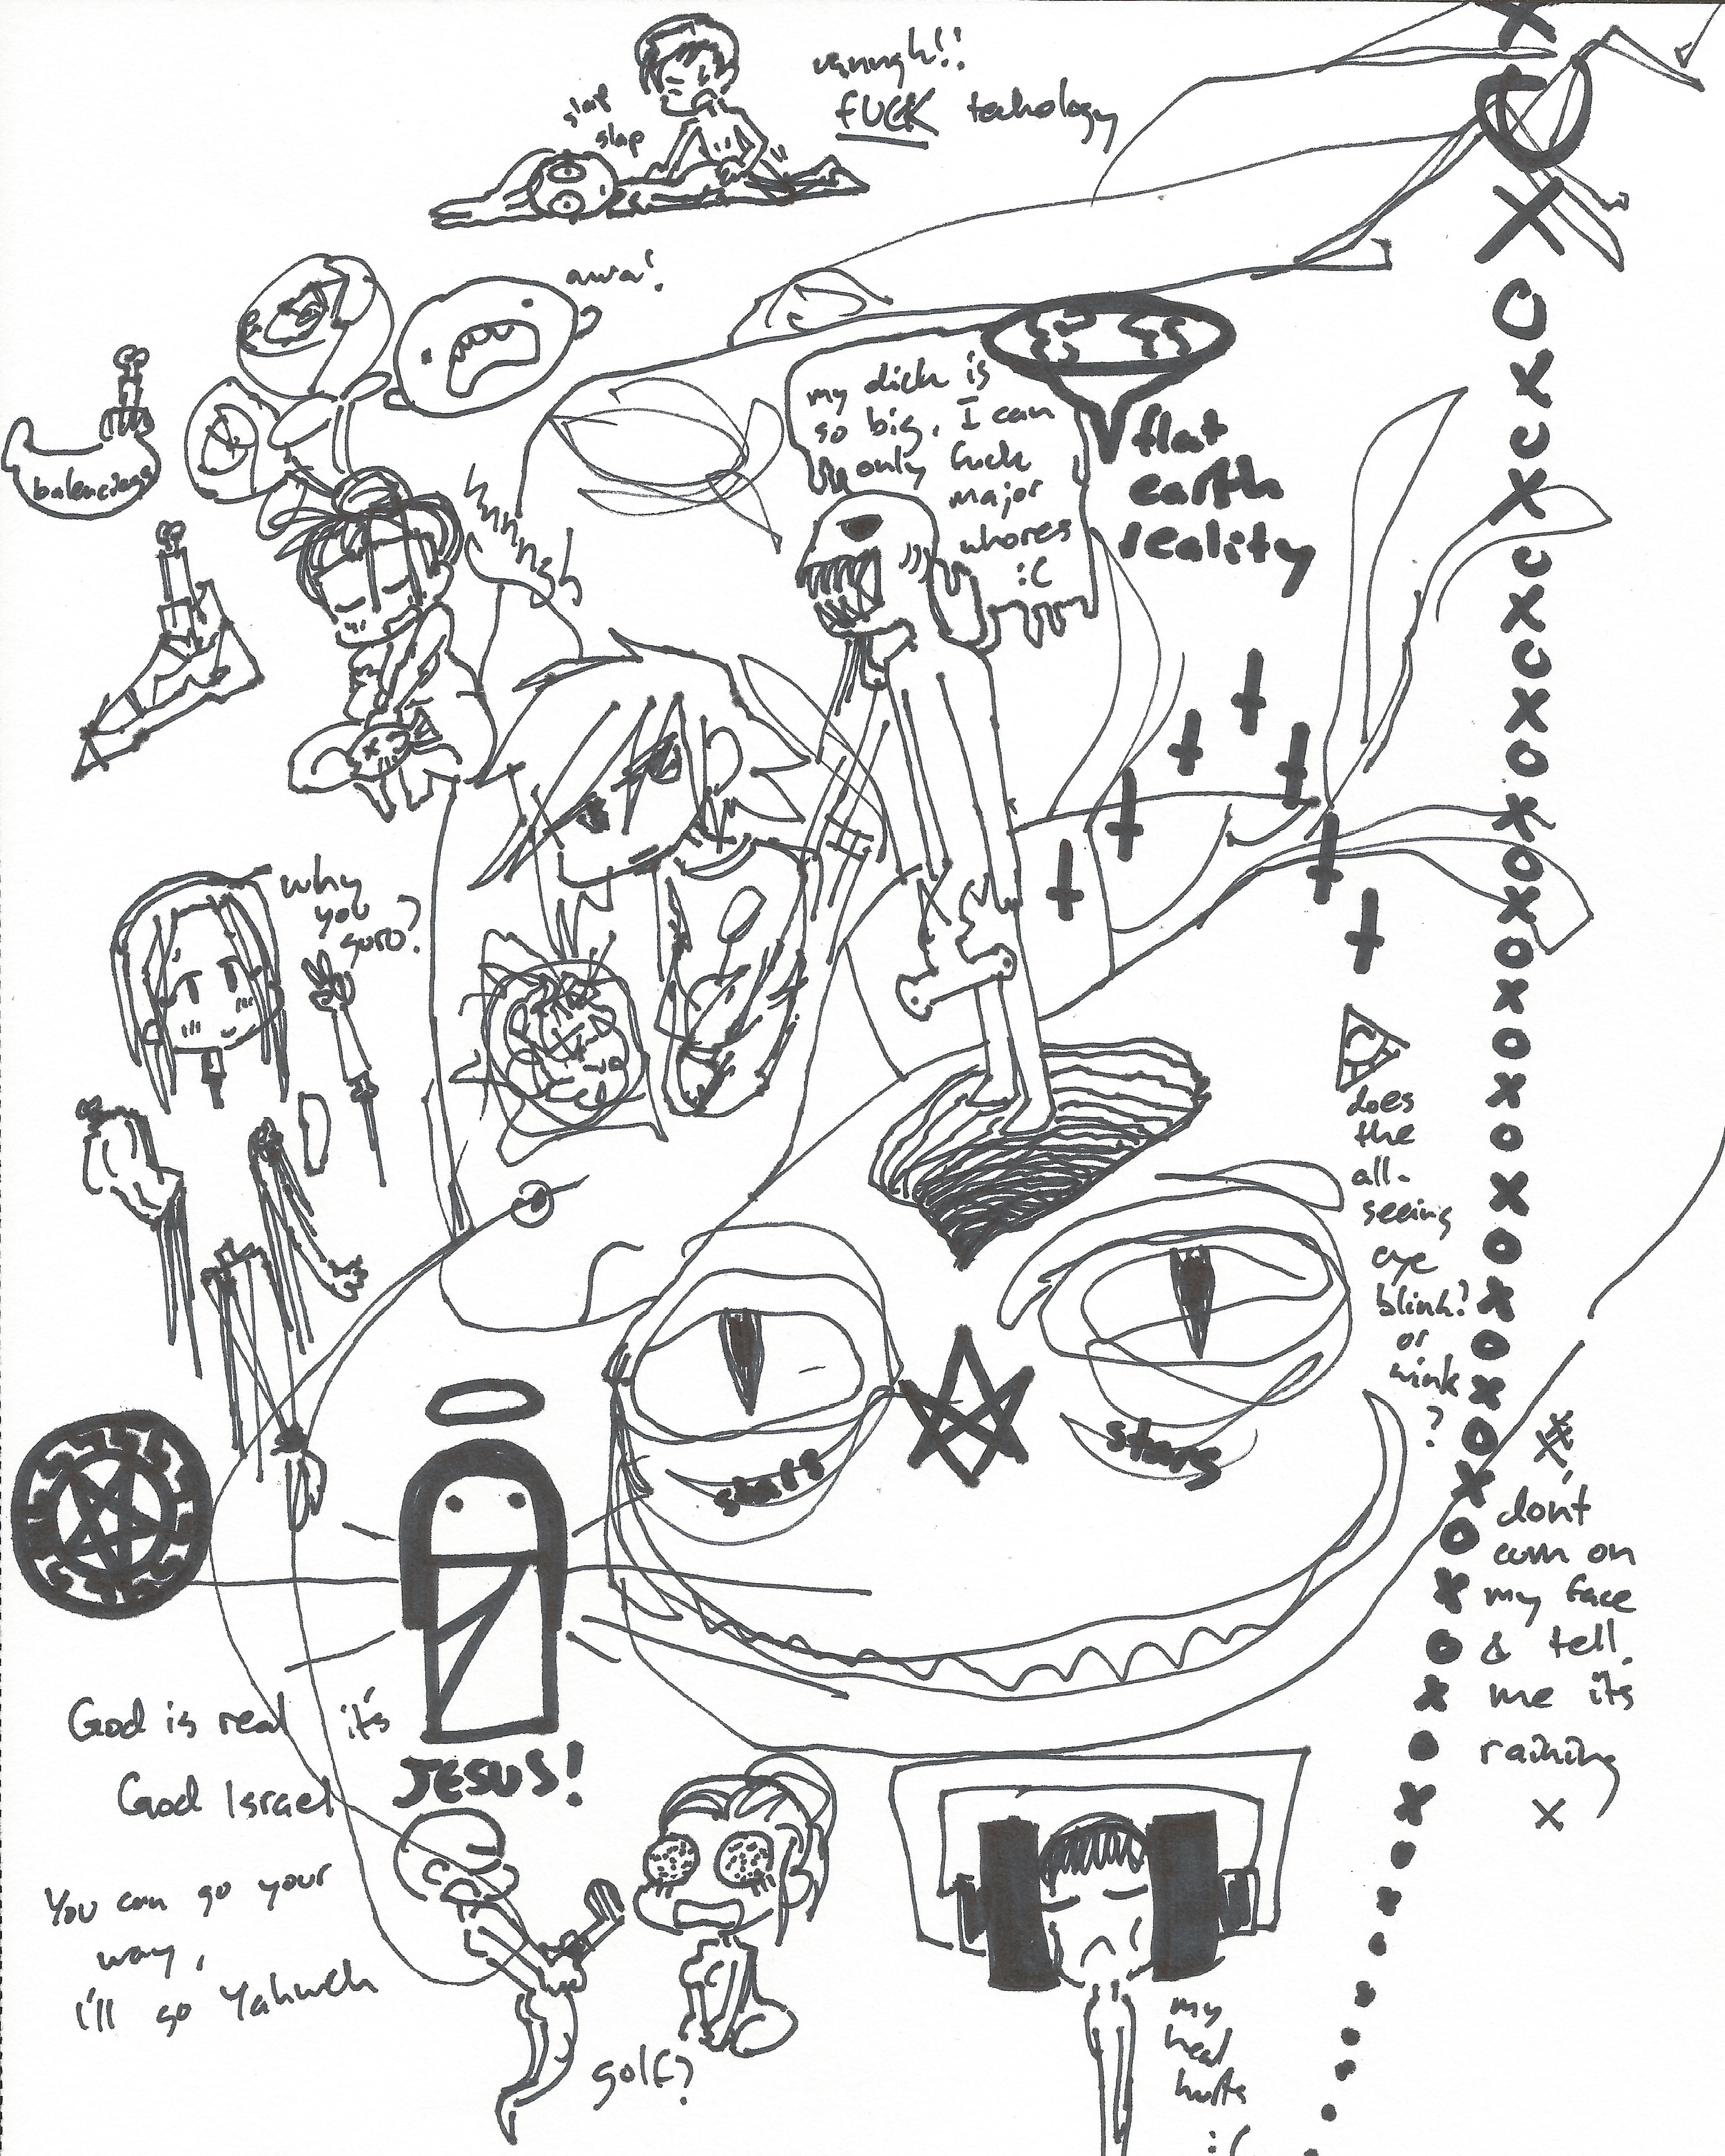 slap
slap
unnngh!!
FUCK techology
awa!
balenciaga
my dick is
so big, I can
only fuck
major
whores
:C
flat
earth
reality
nnnngh
why
you
guro?
does
the
all-
seeing
eye
blink?
or
wink
?
stars
stars
dont
cum on
my face
& tell
me it's
raining
x
God is real it's
JESUS!
God Israel
You can go your
way,
I'll go Yahweh
golf?
my
head
hurts
:(